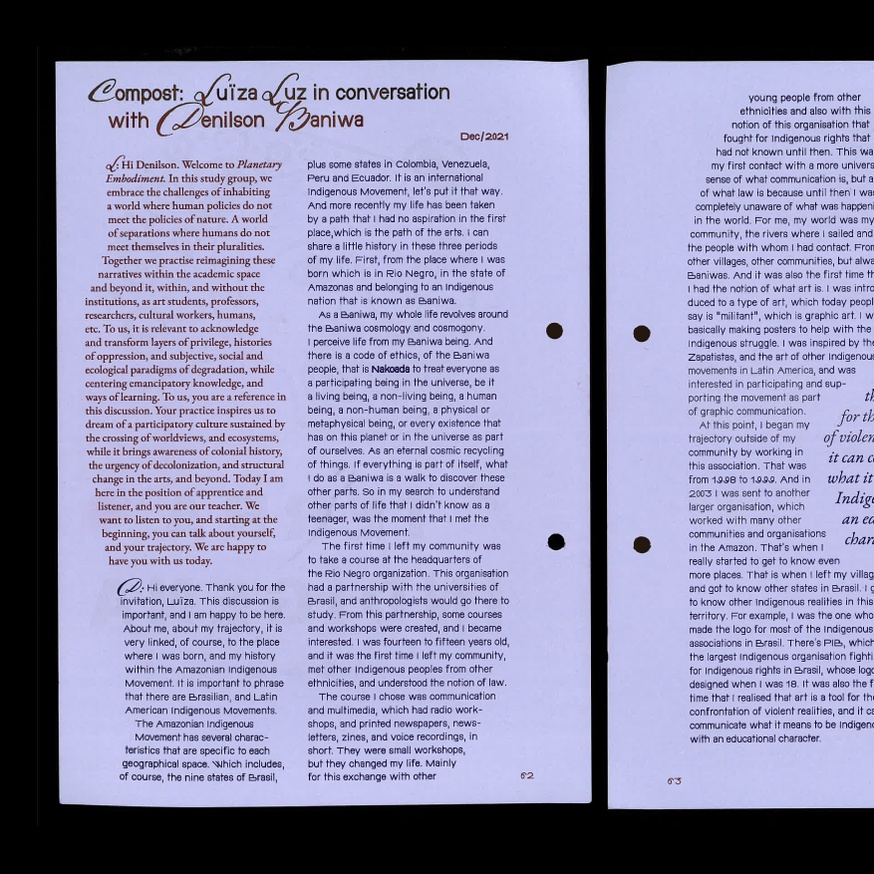 Compost: Luïza Luz in conversation
with Denilson Baniwa
Dec/2021
L: Hi Denilson. Welcome to Planetary
Embodiment. In this study group, we
embrace the challenges of inhabiting
a world where human policies do not
meet the policies of nature. A world
of separations where humans do not
meet themselves in their pluralities.
Together we practise reimagining these
narratives within the academic space
and beyond it, within, and without the
institutions, as art students, professors,
researchers, cultural workers, humans,
etc. To us, it is relevant to acknowledge
and transform layers of privilege, histories
of oppression, and subjective, social and
ecological paradigms of degradation, while
centering emancipatory knowledge, and
ways of learning. To us, you are a reference in
this discussion. Your practice inspires us to
dream of a participatory culture sustained by
the crossing of worldviews, and ecosystems,
while it brings awareness of colonial history,
the urgency of decolonization, and structural
change in the arts, and beyond. Today I am
here in the position of apprentice and
listener, and you are our teacher. We
want to listen to you, and starting at the
beginning, you can talk about yourself,
and your trajectory. We are happy to
have you with us today.
D: Hi everyone. Thank you for the
invitation, Luïza. This discussion is
important, and I am happy to be here.
About me, about my trajectory, it is
very linked, of course, to the place
where I was born, and my history
within the Amazonian Indigenous
Movement. It is important to phrase
that there are Brasilian, and Latin
American Indigenous Movements.
The Amazonian Indigenous
Movement has several charac-
teristics that are specific to each
geographical space. Which includes,
of course, the nine states of Brasil,
plus some states in Colombia, Venezuela,
Peru and Ecuador. It is an international
Indigenous Movement, let's put it that way.
And more recently my life has been taken
by a path that I had no aspiration in the first
place,which is the path of the arts. I can
share a little history in these three periods
of my life. First, from the place where I was
born which is in Rio Negro, in the state of
Amazonas and belonging to an Indigenous
nation that is known as Baniwa.
As a Baniwa, my whole life revolves around
the Baniwa cosmology and cosmogony.
I perceive life from my Baniwa being. And
there is a code of ethics, of the Baniwa
people, that is Nakoada to treat everyone as
a participating being in the universe, be it
a living being, a non-living being, a human
being, a non-human being, a physical or
metaphysical being, or every existence that
has on this planet or in the universe as part
of ourselves. As an eternal cosmic recycling
of things. If everything is part of itself, what
I do as a Baniwa is a walk to discover these
other parts. So in my search to understand
other parts of life that I didn't know as a
teenager, was the moment that I met the
Indigenous Movement.
The first time I left my community was
to take a course at the headquarters of
the Rio Negro organization. This organisation
had a partnership with the universities of
Brasil, and anthropologists would go there to
study. From this partnership, some courses
and workshops were created, and I became
interested. I was fourteen to fifteen years old,
and it was the first time I left my community,
met other Indigenous peoples from other
ethnicities, and understood the notion of law.
The course I chose was communication
and multimedia, which had radio work-
shops, and printed newspapers, news-
letters, zines, and voice recordings, in
short. They were small workshops,
but they changed my life. Mainly
for this exchange with other
62
young people from other
ethnicities and also with this
notion of this organisation that
fought for Indigenous rights that
had not known until then. This wa
my first contact with a more univers
sense of what communication is, but a
of what law is because until then I wa
completely unaware of what was happeni
in the world. For me, my world was my
community, the rivers where I sailed and
the people with whom I had contact. From
other villages, other communities, but alwa
Baniwas. And it was also the first time th
I had the notion of what art is. I was intro
duced to a type of art, which today peopl
say is "militant", which is graphic art. I w
basically making posters to help with the
Indigenous struggle. I was inspired by the
Zapatistas, and the art of other Indigenou
movements in Latin America, and was
interested in participating and sup-
porting the movement as part
of graphic communication.
At this point, I began my
trajectory outside of my
community by working in
this association. That was
from 1998 to 1999. And in
2003 I was sent to another
larger organisation, which
worked with many other
communities and organisations
in the Amazon. That's when I
really started to get to know even
more places. That is when I left my villag
and got to know other states in Brasil. I g
to know other Indigenous realities in this
territory. For example, I was the one who
made the logo for most of the Indigenous
associations in Brasil. There's PIB, which
the largest Indigenous organisation fighti
for Indigenous rights in Brasil, whose logo
designed when I was 18. It was also the f
time that I realised that art is a tool for the
confrontation of violent realities, and it ca
communicate what it means to be Indigeno
with an educational character.
th
for th
of violen
it can c
what it
Indige
an ed
chara
63